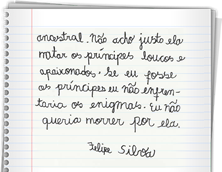 ancestral. Não acho justo ela
matar os príncipes loucos e
apaixonados. Se eu fosse
os príncipes eu não enfren-
taria os enigmas. Eu não
queria morrer por ela.
Felipe Silva